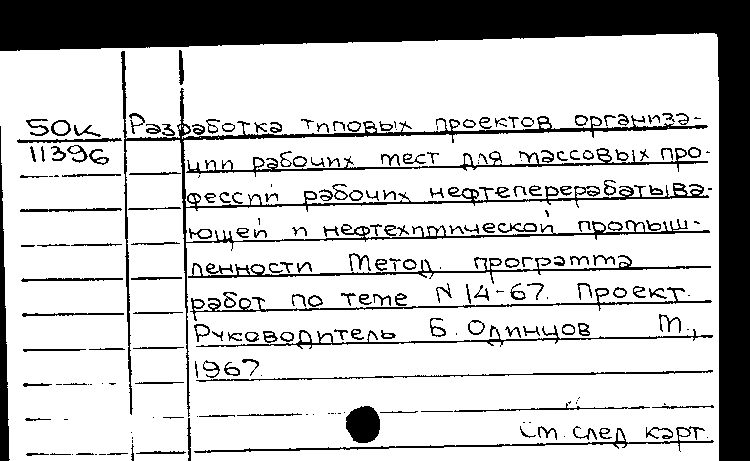 50к Разработка типовых проектов организа-
11396 ции рабочих мест для массовых про-
фессий рабочих нефтеперерабатыва-
ющей и нефтехимической промыш-
ленности Метод. программа
работ по теме N 14-67. Проект.
Руководитель Б. Одинцов М.,
1967
См. след карт.